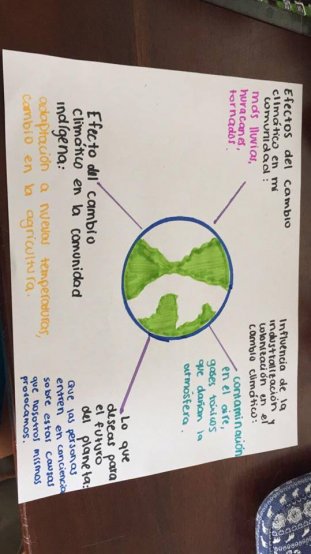 Efectos del cambio
climático en mi
comunidad:
más lluvias,
huracanes,
tornados.
Influencia de la
industrialización y
colonización en el
cambio climático:
contaminación
en el aire,
gases tóxicos
que dañan la
atmosfera.
Efecto del cambio
climático en la comunidad
indígena:
adaptación a nuevas temperaturas,
cambio en la agricultura.
Lo que
deseas para
el futuro
del planeta:
Que las personas
entren en conciencia
sobre estas causas
que nosotros mismos
provocamos.